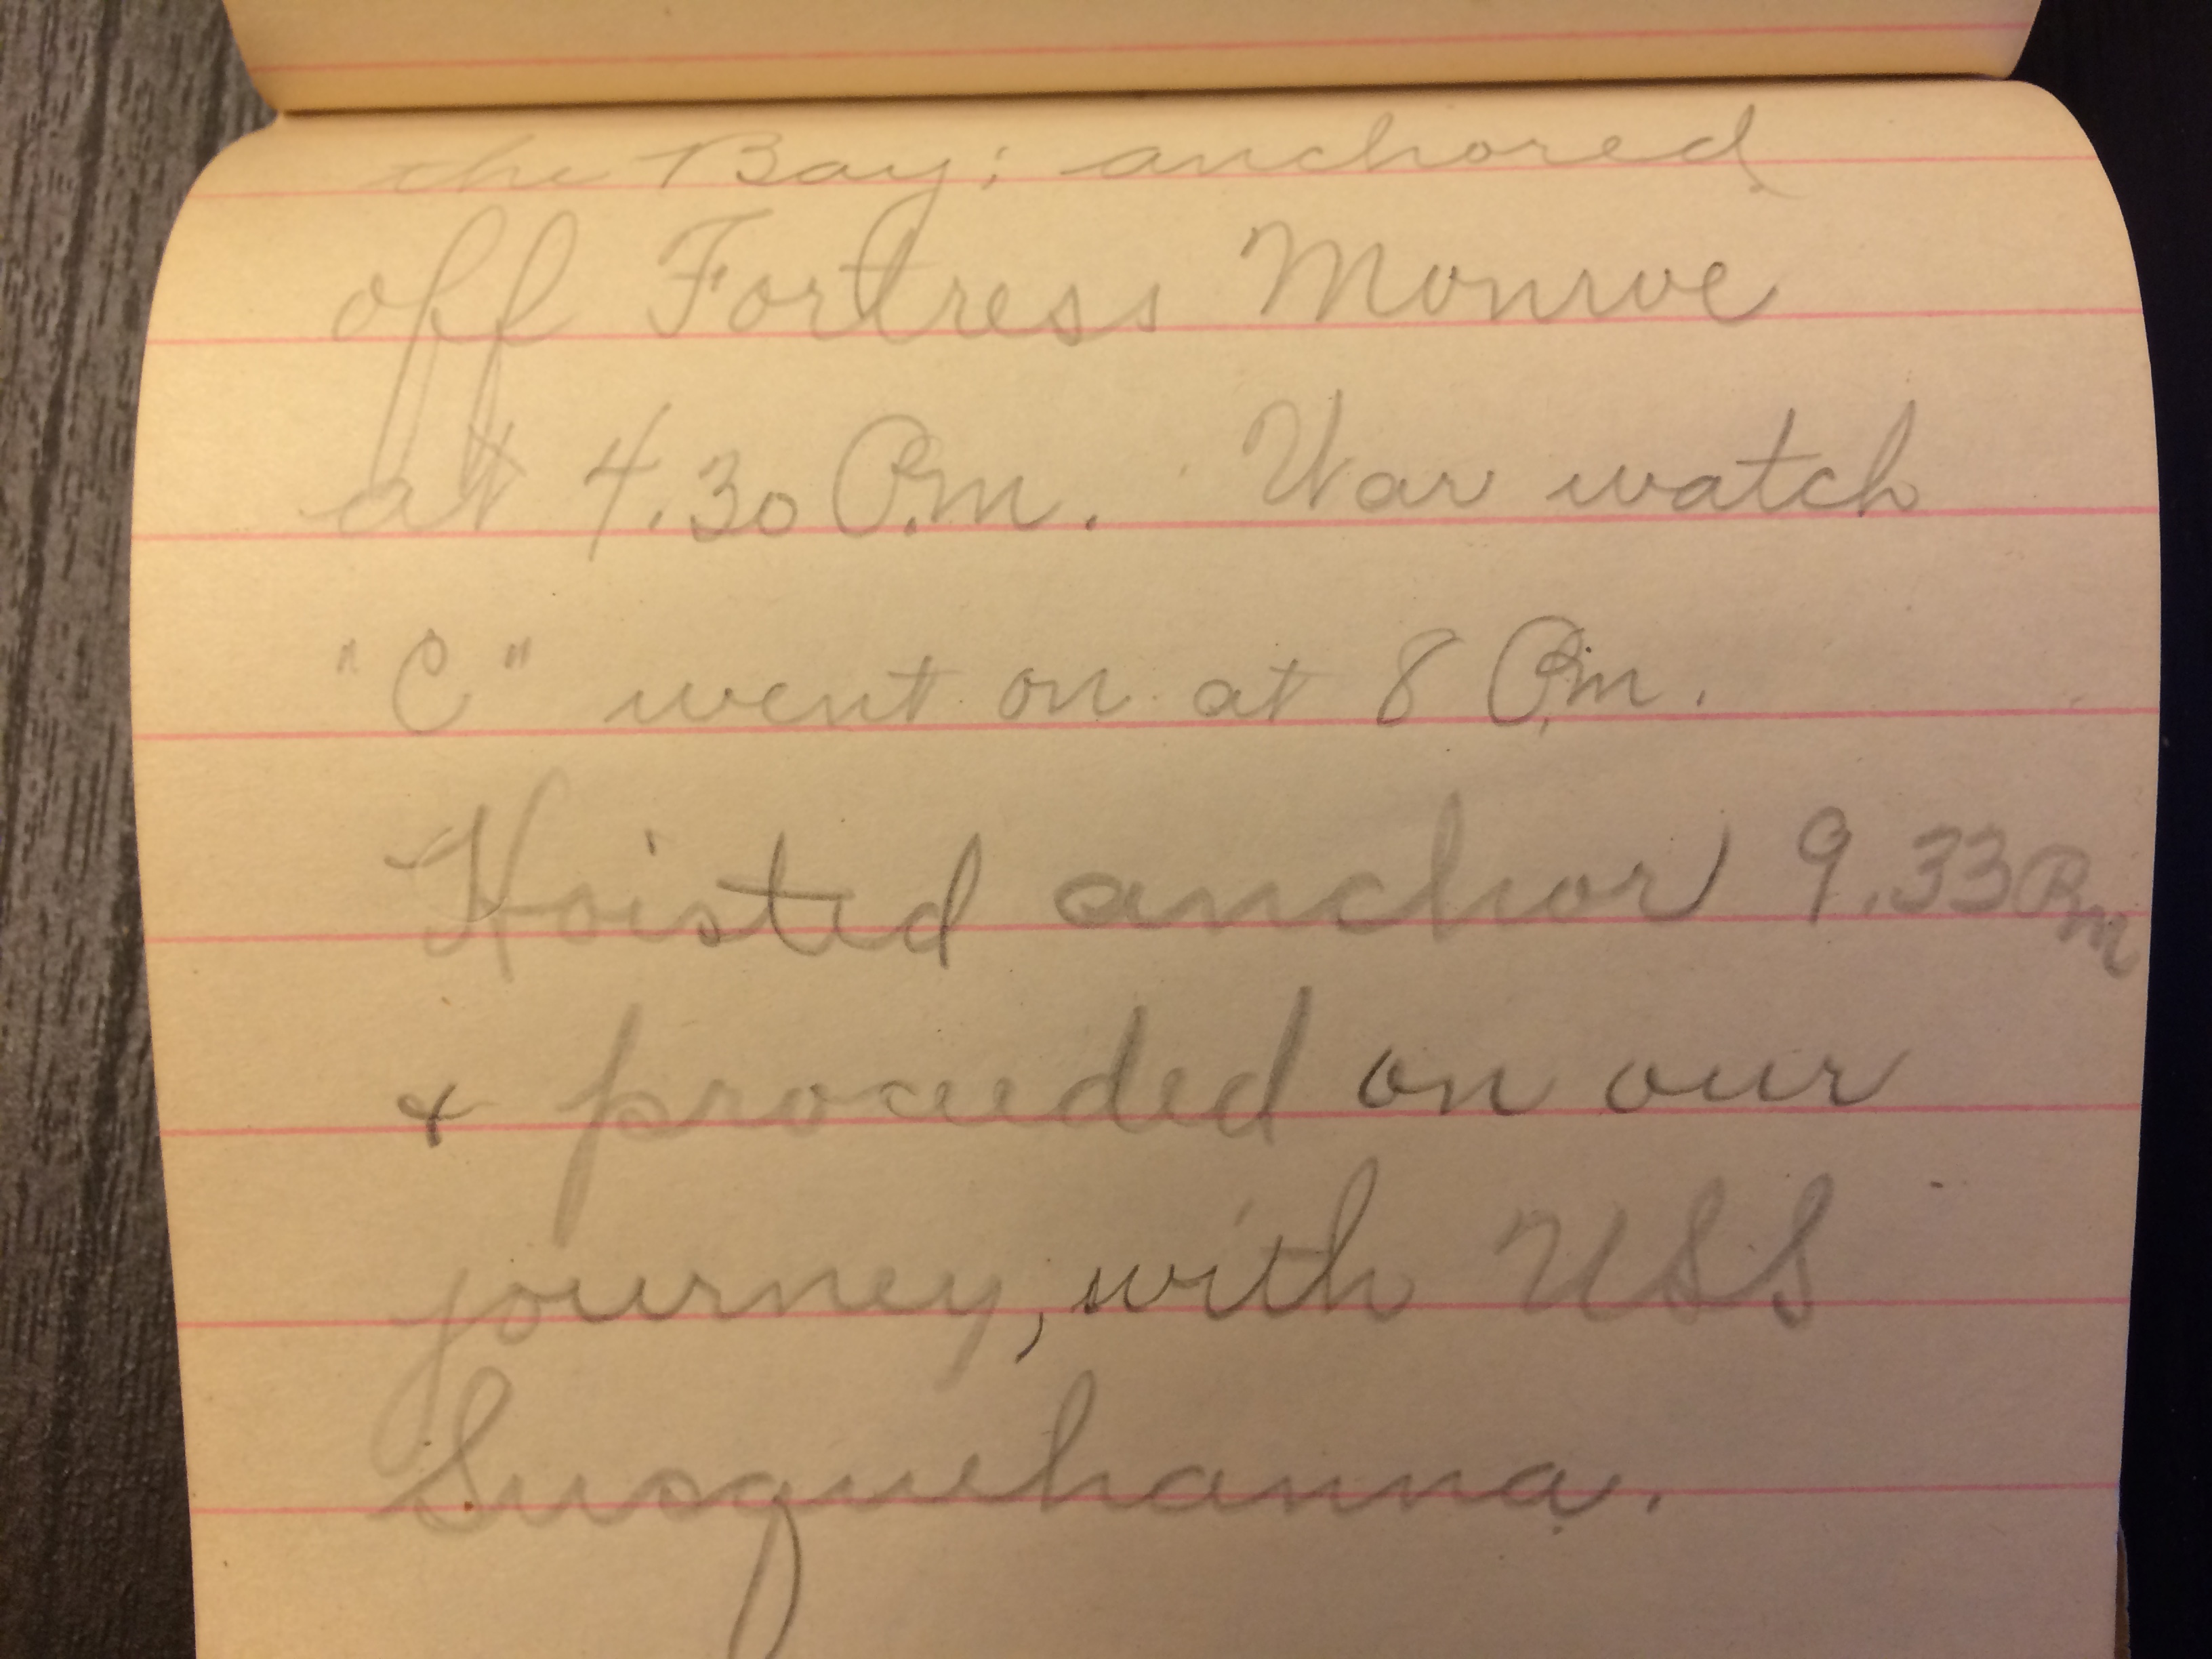 the Bay; anchored
off Fortress Monroe
at 4.30 P.m. War watch
"C" went on at 8 P.m.
Hoisted anchor 9.33 Pm
& proceeded on our
journey, with USS
Susquehanna.